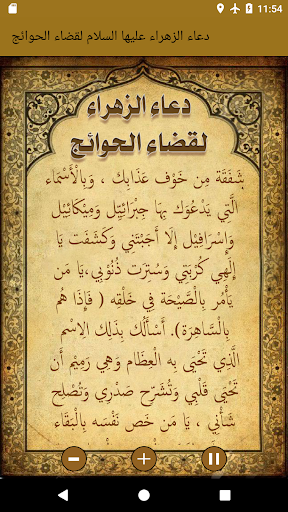 11:54
دعاء الزهراء عليها السلام لقضاء الحوائج
دعاء الزهراء
لقضاء الحوائج
شَفَقَة مِن خَوْف عَذَابِك ، وَبِالْأَسْمَاء
الَّتِي يَدْعُوَك بِهَا جِبْرَائِيَل وَمِيكَائِيَل
وَإِسْرَافِيَل إِلَّا أَجَبْتَنِي وَكَشَفْت يَا
إِلَهِي كُرْبَتِي وَسَتَرْت ذُنُوْبِي،يَا مَن
يَأْمُر بِالْصَّيْحَة فِي خَلْقِه ( فَإِذَا هُم
بِالْسَّاهِرَة). أَسْأَلُك بِذَلِك الاسْم
الَّذِي تَحْيَى بِه الْعِظَام وَهِي رَمِيْم أَن
تَحْيَى قَلْبِي وَتُشَرِّح صَدْرِي وَتُصْلِح
شَأْنِي ، يَا مَن خَص نَفْسَه بِالْبَقَاء